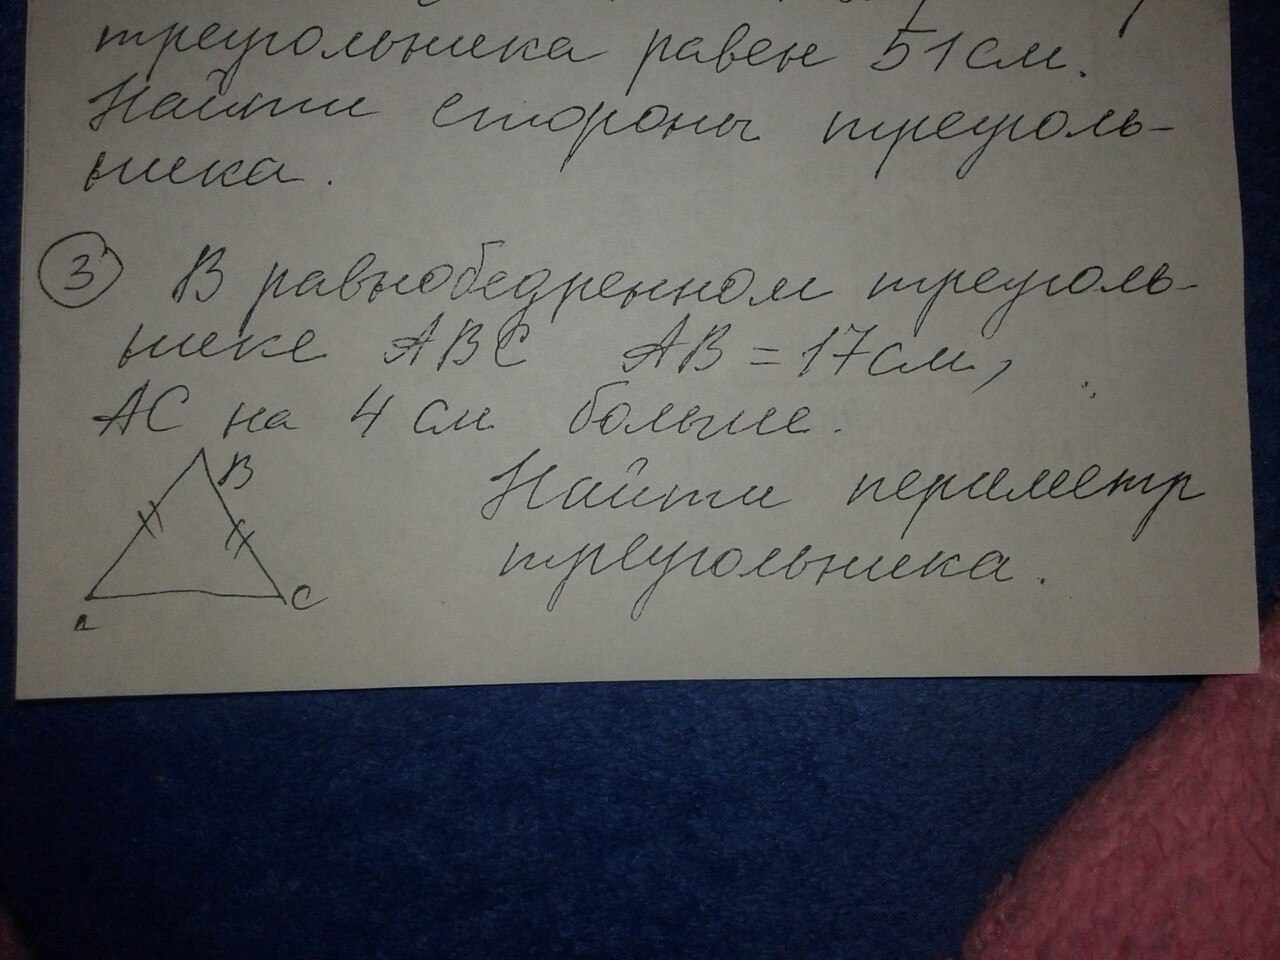 треугольника равен 51 см.
Найти стороны треуголь-
ника.
3 В равнобедренном треуголь-
нике ABC AB = 17 см,
AC на 4 см больше.
Найти периметр
треугольника.
B
A
C